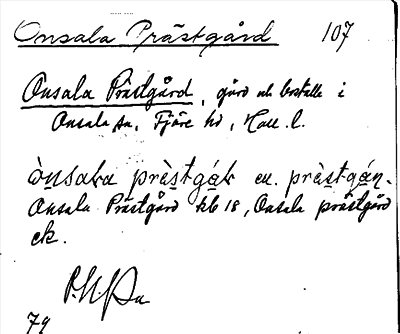 Onsala Prästgård 107
Onsala Prästgård, gård och boställe i
Onsala sn, Fjäre hd, Hall. l.
ònsaka prä̀stgák el. prä̀stgán.
Onsala Prästgård kb 18, Onsala prästgård
ek.
79